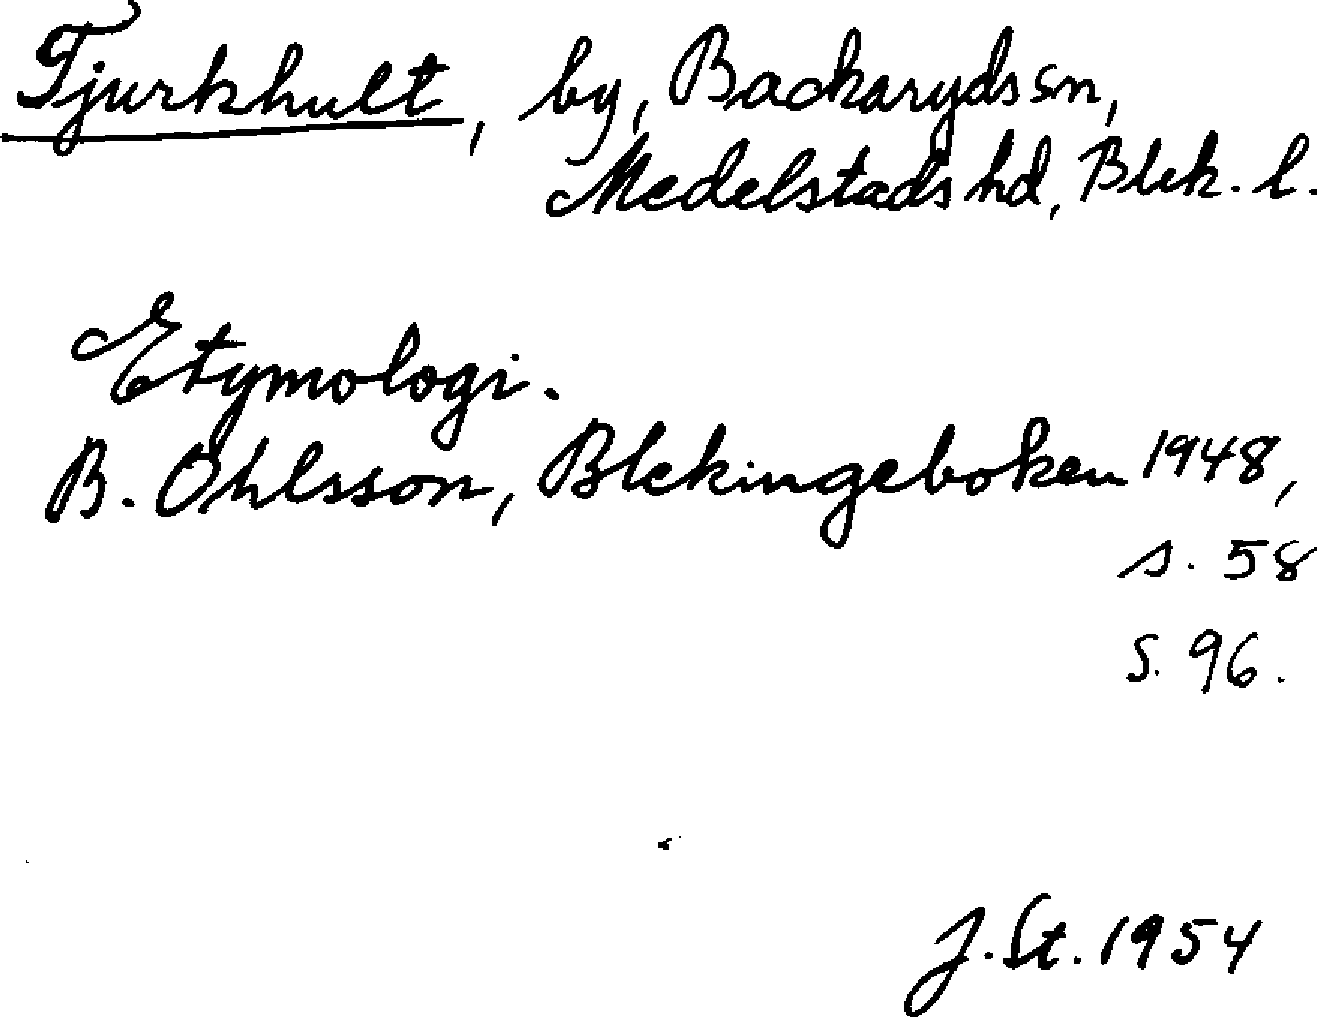 Tjurkhult, by, Backaryds sn,
Medelstads hd, Blek. l.
Etymologi.
B. Ohlsson, Blekingeboken 1948,
s. 58
s. 96.
J. St. 1954